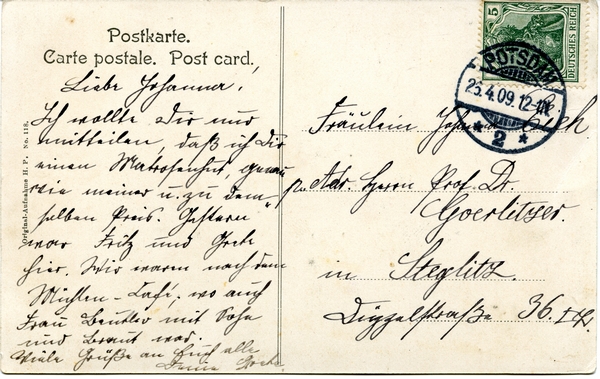 Postkarte.
Carte postale. Post card.
Liebe Johanna!
Ich wollte Dir nur
mitteilen, daß ich Dir
einen Matrosenhut, genau
wie meiner u. zu dem-
selben Preis. Gestern
war Fritz und Grete
hier. Wir waren nach dem
Café, wo auch
Frau Beutler mit Sohn
und Braut war.
Viele Grüße an Euch alle
Deine Grete.
Original-Aufnahme H. P. No. 118.
5
DEUTSCHES REICH
POTSDAM
25.4.09.12-1N.
* 2 *
Fräulein
Adr. Herrn Prof. Dr.
Goerlitzer.
in Steglitz.
Düppelstraße 36.